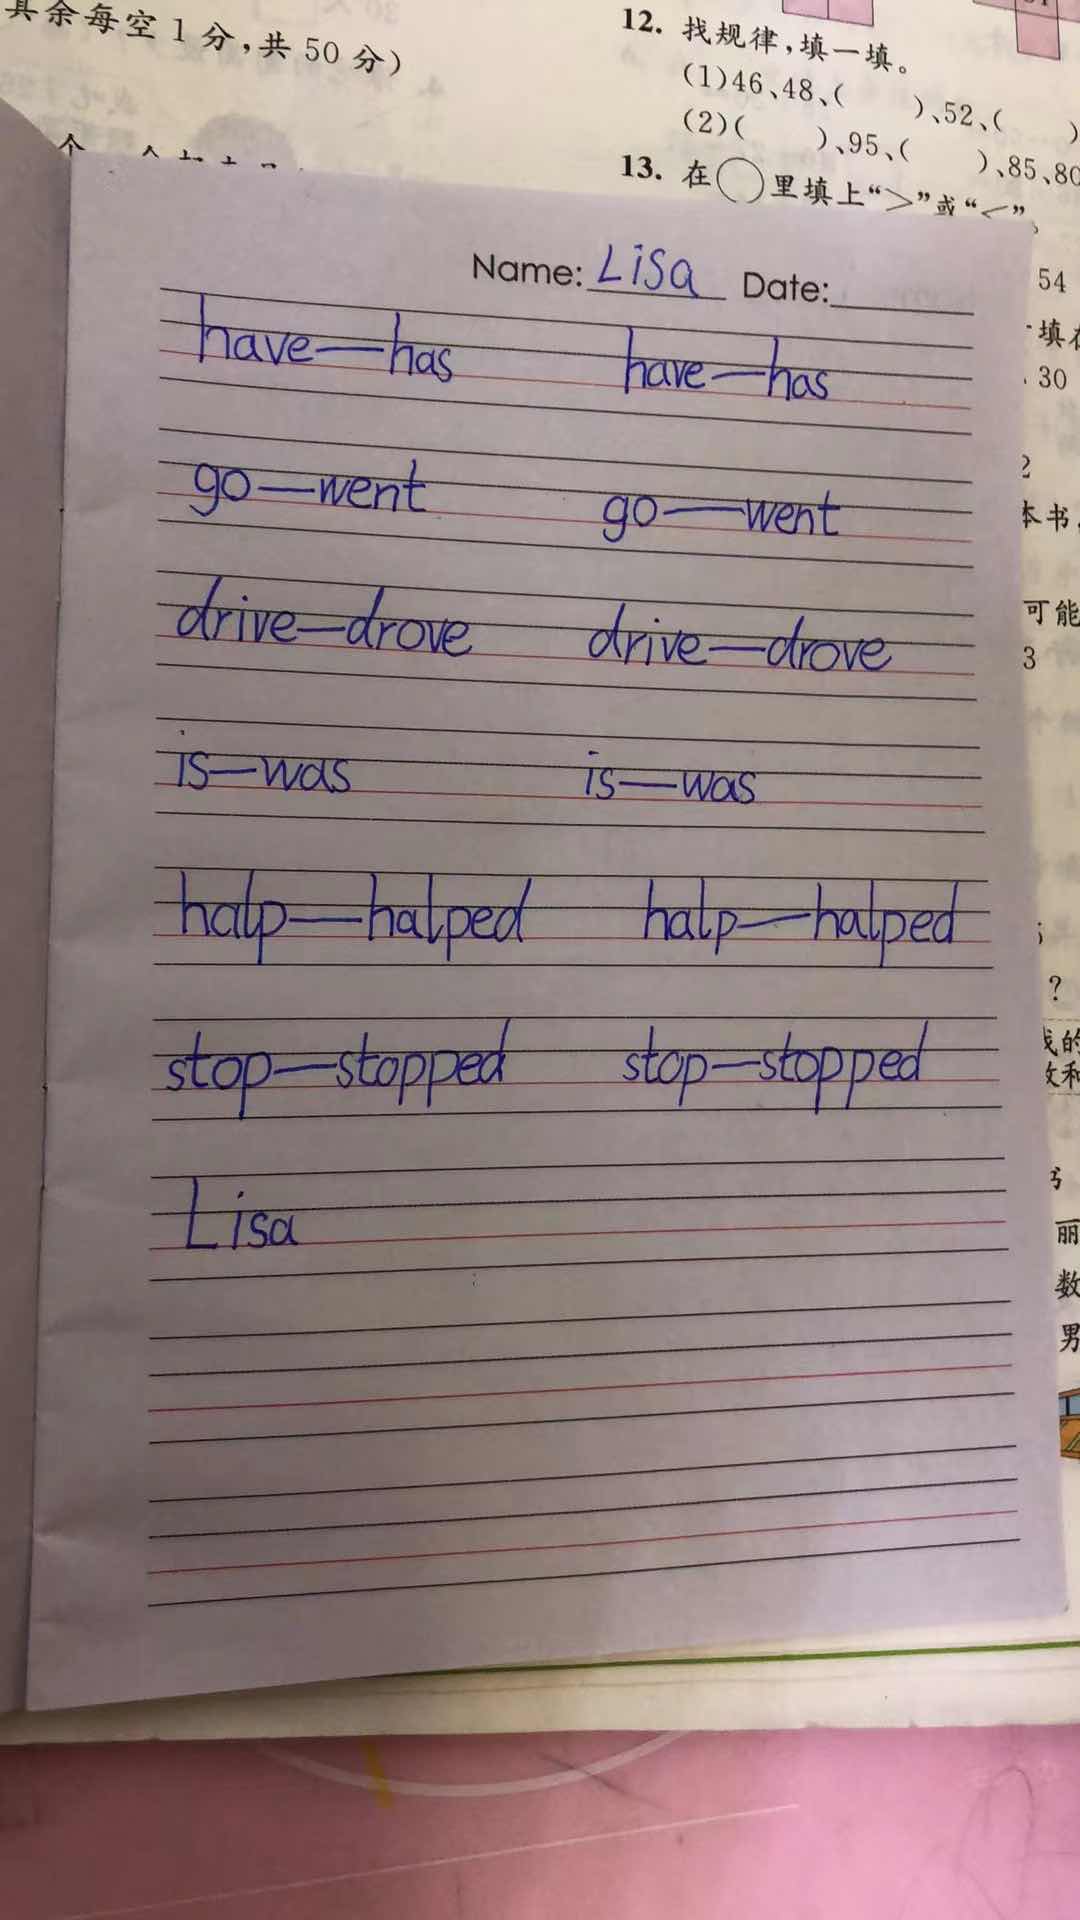 其余每空1分,共50分)
12. 找规律,填一填。
(1)46、48、( )、52、( )
(2)( )、95、( )、85、80
13. 在○里填上“>”或“<”。
54
填在
30
2
本书,
可能
3
?
我的
数和
丽
数
男
Name: Lisa Date:
have—has have—has
go—went go—went
drive—drove drive—drove
is—was is—was
halp—halped halp—halped
stop—stopped stop—stopped
Lisa